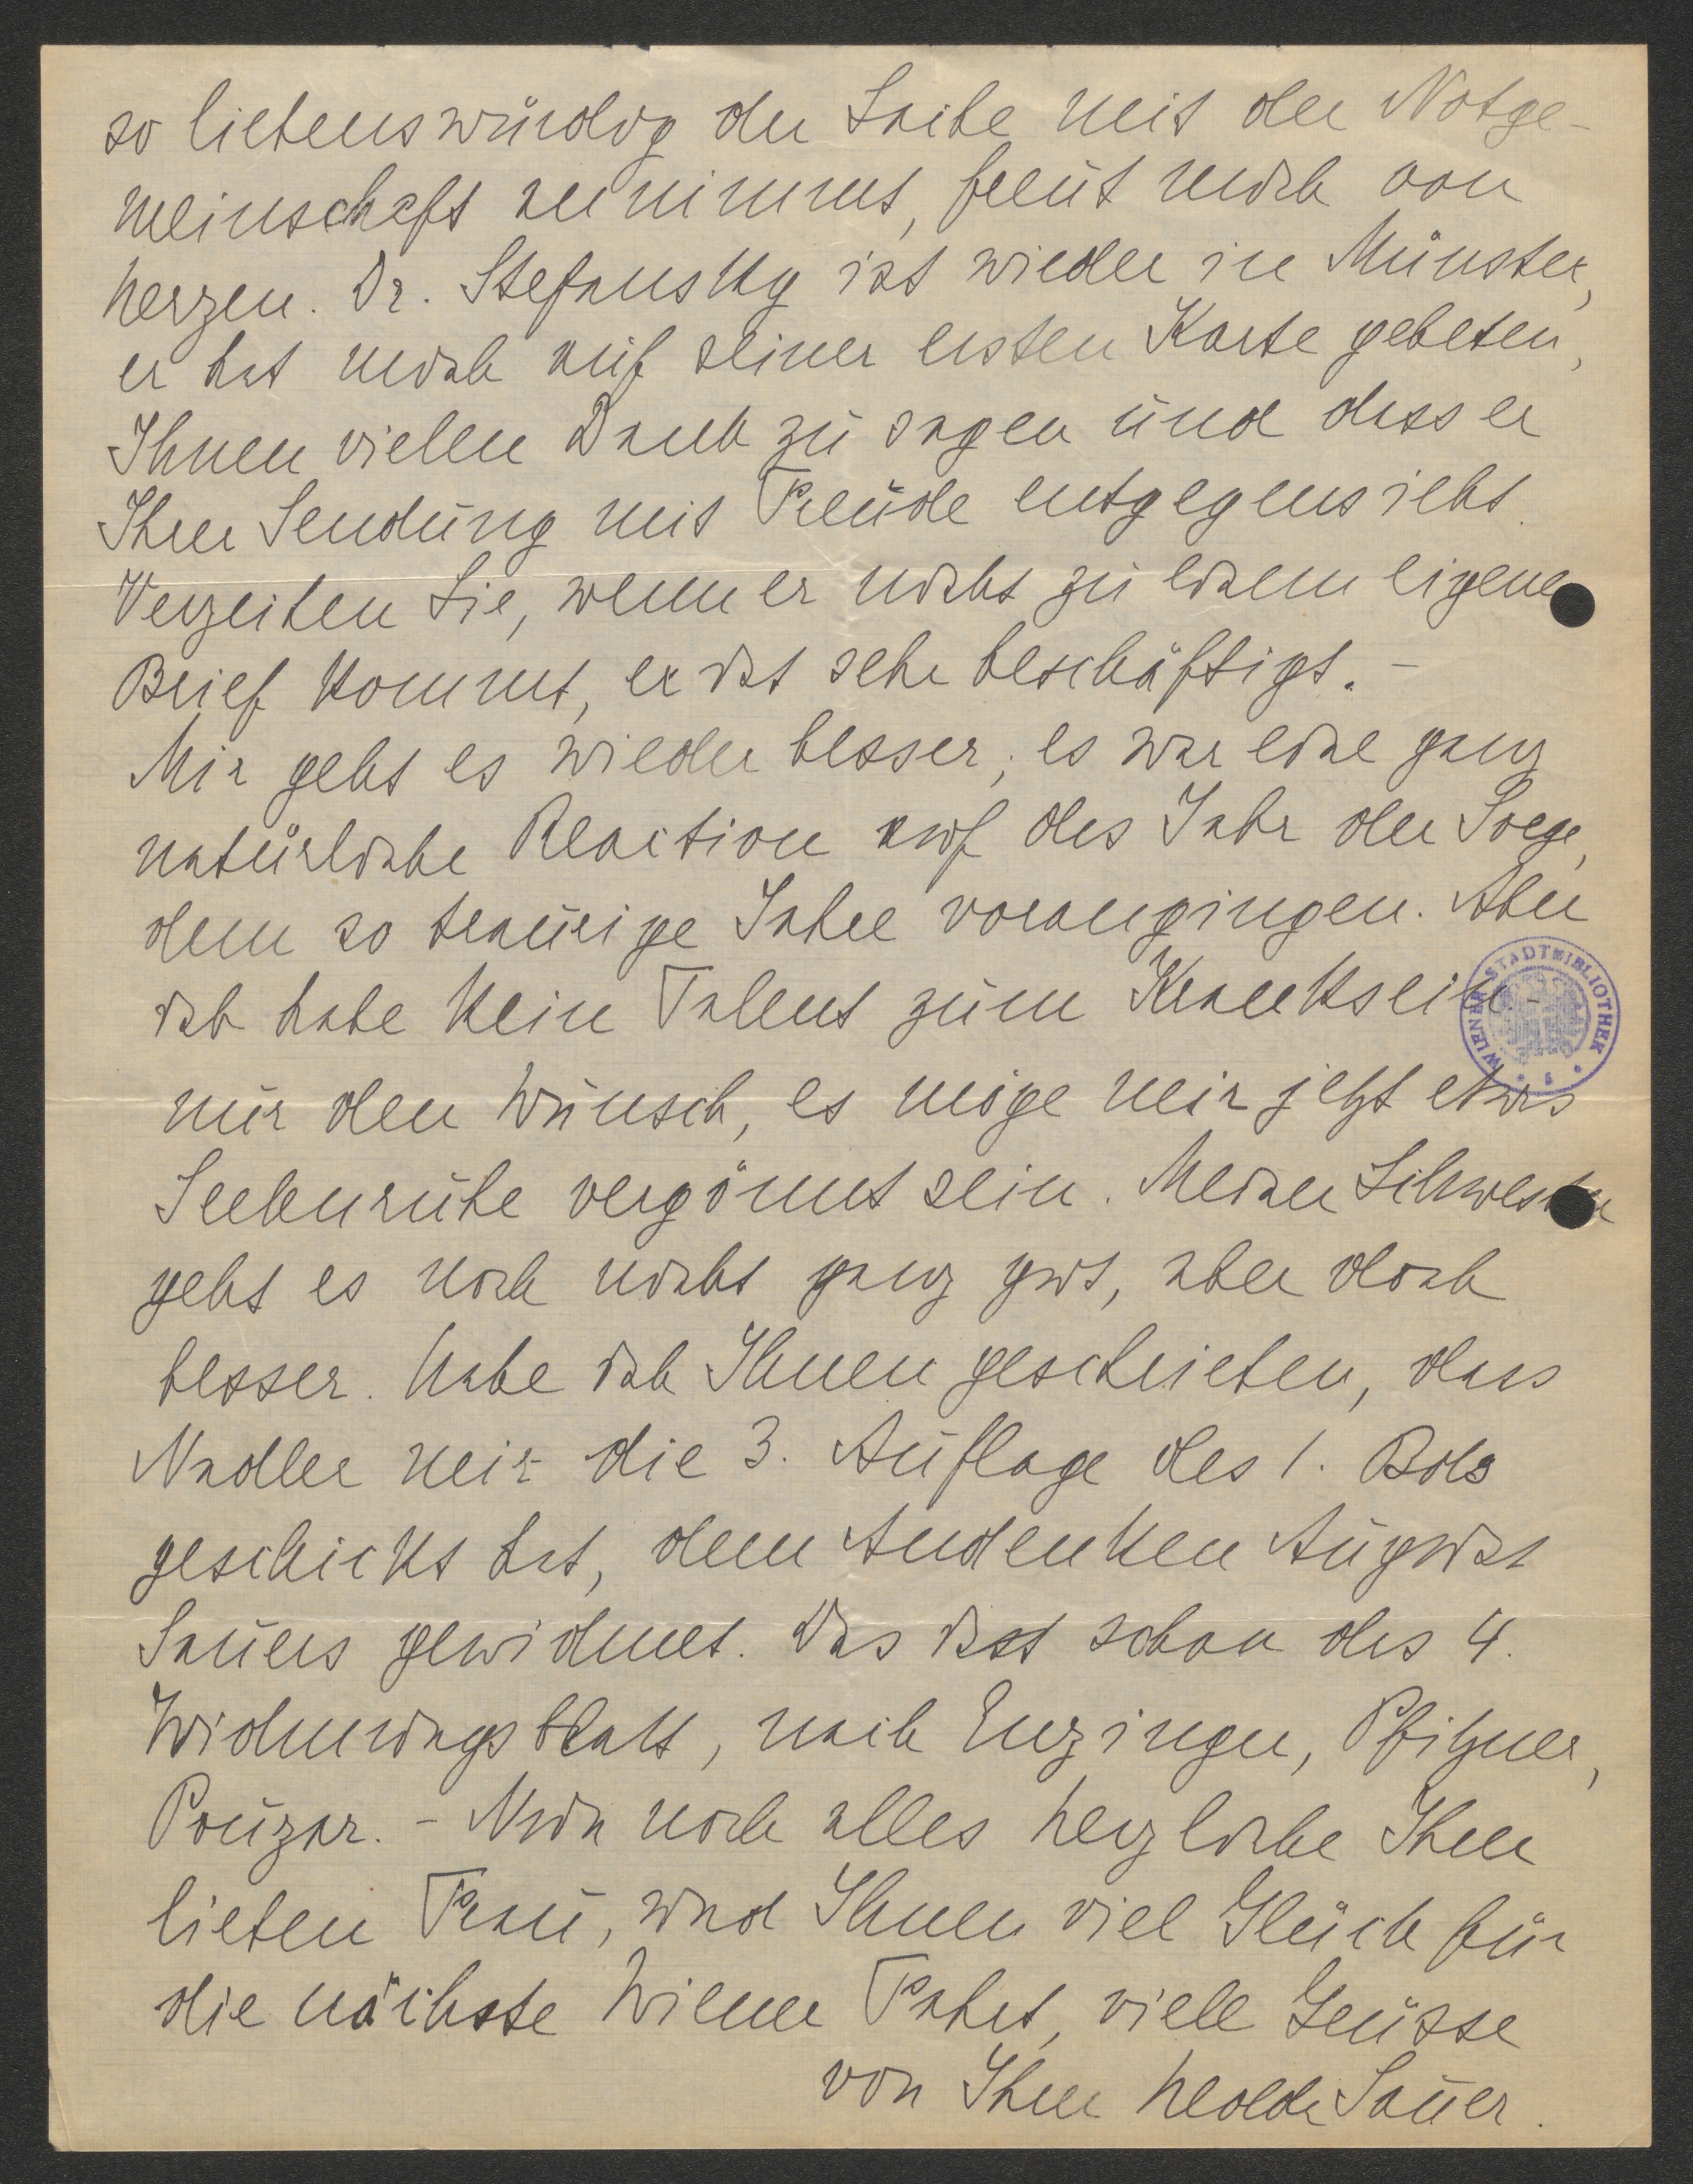 so liebenswürdig der Sache mit der Notge-
meinschaft annimmt, freut mich von
Herzen. Dr. Stefansky ist wieder in Münster,
er hat mich auf seiner ersten Karte gebeten,
Ihnen vielen Dank zu sagen und dass er
Ihrer Sendung mit Freude entgegensieht.
Verzeihen Sie, wenn er nicht zu einem eigenen
Brief kommt, er ist sehr beschäftigt. -
Mir geht es wieder besser, es war eine ganz
natürliche Reaction auf das Jahr der Sorge,
dem so traurige Jahre vorangingen. Aber
ich habe kein Talent zum Kranksein -
nur den Wunsch, es möge mir jetzt etwas
Seelenruhe vergönnt sein. Meiner Schwester
geht es noch nicht ganz gut, aber doch
besser. Habe ich Ihnen geschrieben, dass
Nadler mir die 3. Auflage des 1. Bds
geschickt hat, dem Andenken August
Sauers gewidmet. Das ist schon das 4.
Widmungsblatt, nach Enzinger, Pfitzner,
Pouzar. - Nun noch alles herzliche Ihrer
lieben Frau, und Ihnen viel Glück für
die nächste Wiener Fahrt, viele Grüsse
von Ihrer Hedda Sauer.
WIENER STADTBIBLIOTHEK